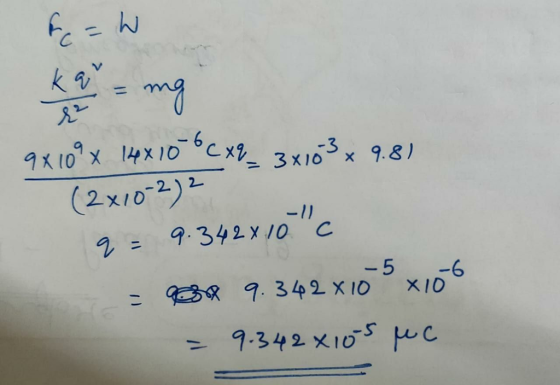 Fc = W
k q² / r² = mg
9×10⁹ × 14×10⁻⁶C × q / (2×10⁻²)² = 3×10⁻³ × 9.81
q = 9.342×10⁻¹¹ C
= 9.342×10⁻⁵ ×10⁻⁶
= 9.342×10⁻⁵ μC